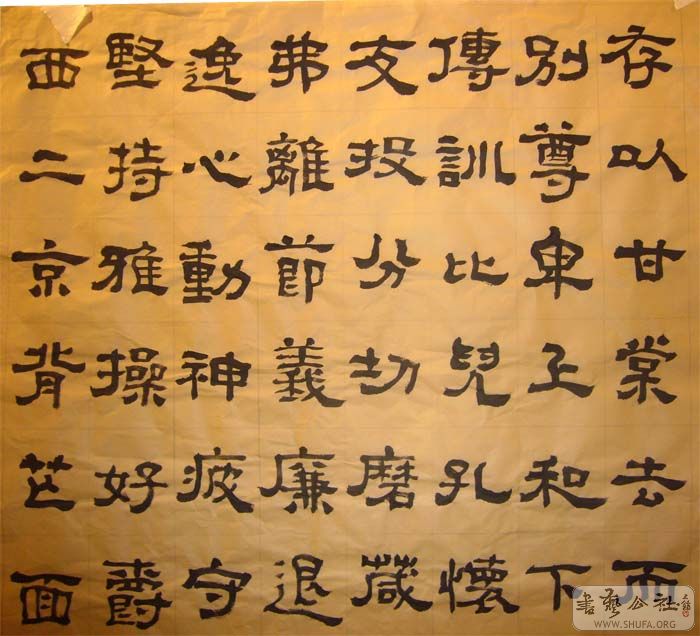 存以甘棠去而
別尊卑上和下
傳訓比兒孔懷
友投分切磨箴
弗離節義廉退
逸心動神疲守
堅持雅操好爵
西二京背芒面
書藝公社
WWW.SHUFA.ORG